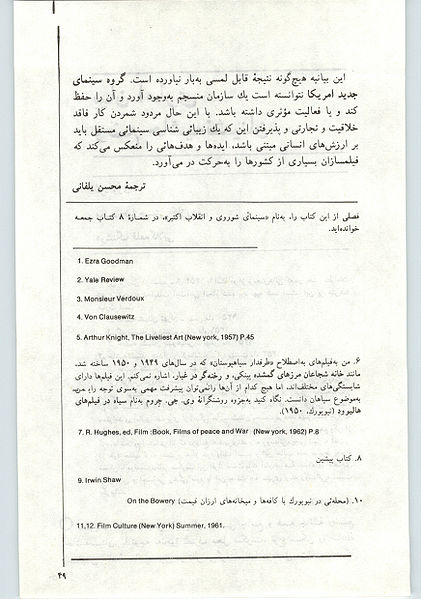 این بیانیه هیچ‌گونه نتیجهٔ قابل لمسی به‌بار نیاورده است. گروه سینمای
جدید امریکا نتوانسته است یك سازمان منسجم به‌وجود آورد و آن را حفظ
کند و یا فعالیت مؤثری داشته باشد. با این حال مردود شمردن کار فاقد
خلاقیت و تجارتی و پذیرفتن این که یك زیبائی شناسی سینمائی مستقل باید
بر ارزش‌های انسانی مبتنی باشد، ایده‌ها و هدف‌هائی را منعکس می‌کند که
فیلمسازان بسیاری از کشورها را به‌حرکت در می‌آورد.
ترجمهٔ محسن یلفانی
فصلی از این کتاب را، به‌نام «سینمای شوروی و انقلاب اکتبر»، در شمارهٔ ۸ کتاب جمعه
خوانده‌اید.
1. Ezra Goodman
2. Yale Review
3. Monsieur Verdoux
4. Von Clausewitz
5. Arthur Knight, The Liveliest Art (New york, 1957) P.45
۶. من به‌فیلم‌های به‌اصطلاح «طرفدار سیاهپوستان» که در سال‌های ۱۹۴۹ و ۱۹۵۰ ساخته شد،
مانند خانه شجاعان مرزهای گمشده پینکی، و رخنه‌گر در غبار، اشاره نمی‌کنم. این فیلم‌ها دارای
شایستگی‌های مختلف‌اند، اما هیچ کدام از آن‌ها را نمی‌توان پیشرفت مهمی به‌سوی توجه
به‌موضوع سیاهان دانست. نگاه کنید به‌جزوه روشنگرانهٔ وی. جی. جروم به‌نام سیاه در فیلم‌های
هالیوود (نیویورك، ۱۹۵۰).
7. R. Hughes, ed, Film :Book, Films of peace and War (New york, 1962) P.8
۸. کتاب پیشین
9. Irwin Shaw
۱۰. (محله‌ئی در نیویورك با کافه‌ها و میخانه‌های ارزان قیمت) On the Bowery
11,12. Film Culture (New York) Summer, 1961.
۴۹